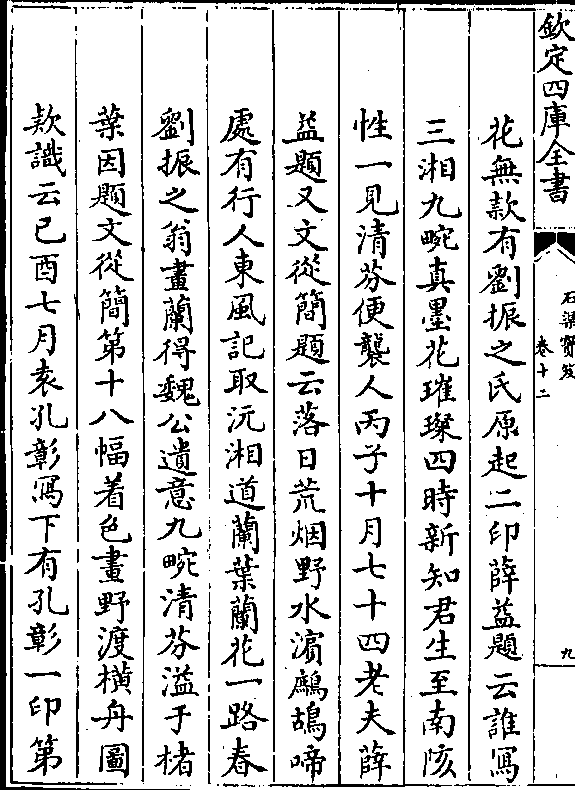 欽定四庫全書
石渠寳笈
卷十二
九
花無款有劉振之氏原起二印薛益題云誰寫
三湘九畹真墨花璀璨四時新知君生至南陔
性一見清芬便襲人丙子十月七十四老夫薛
益題又文從簡題云落日荒烟野水濵鷓鴣啼
處有行人東風記取沅湘道蘭葉蘭花一路春
劉振之翁畫蘭得魏公遺意九畹清芬溢于楮
葉因題文從簡第十八幅着色畫野渡橫舟圖
款識云己酉七月袁孔彰寫下有孔彰一印第